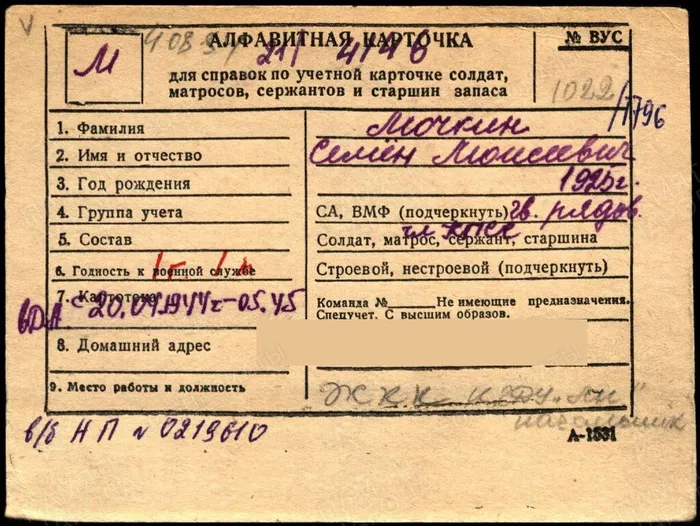 АЛФАВИТНАЯ КАРТОЧКА
№ ВУС
М
211 4146
для справок по учетной карточке солдат,
матросов, сержантов и старшин запаса
1022
/1796
1. Фамилия Мочкин
2. Имя и отчество Семён Моисеевич
3. Год рождения 1925г.
4. Группа учета СА, ВМФ (подчеркнуть) гв. рядов.
5. Состав Солдат, матрос, сержант, старшина
чл КПСС
6. Годность к военной службе Строевой, нестроевой (подчеркнуть)
7. Картотека Команда № Не имеющие предназначения.
Спецучет. С высшим образов.
с 20.04.1944г-05.45
8. Домашний адрес
9. Место работы и должность ЖКК
начальник
в/б НП № 0219610
А-1531